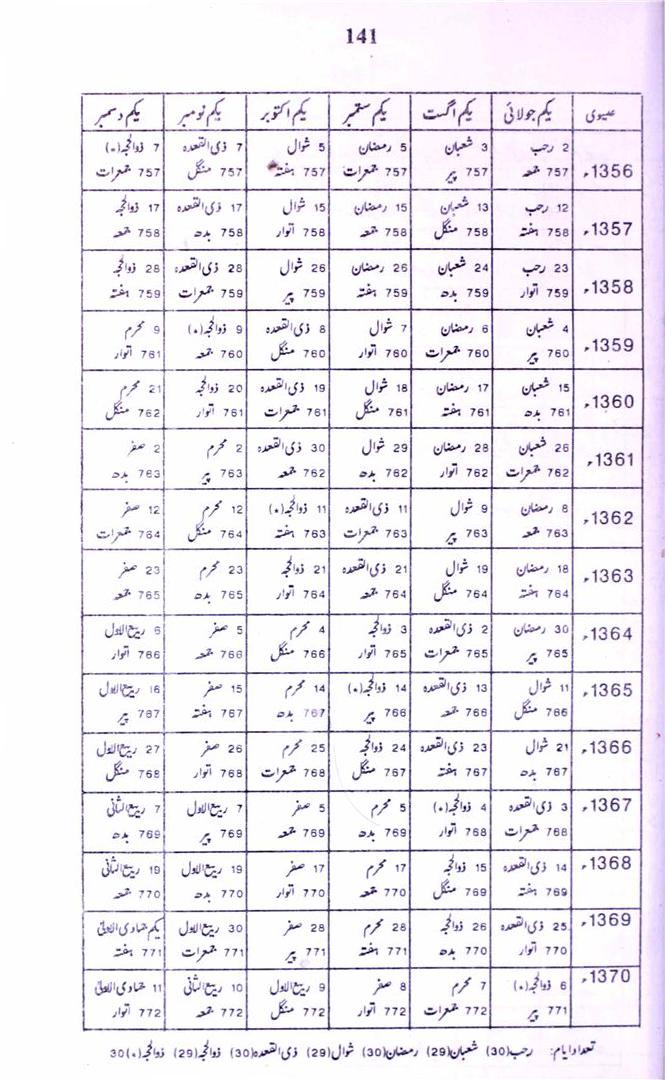 141
عیسوی یکم جولائی یکم اگست یکم ستمبر یکم اکتوبر یکم نومبر یکم دسمبر
1356ء 2 رجب 3 شعبان 5 رمضان 5 شوال 7 ذی القعدہ 7 ذوالحجہ(٭)
757 جمعہ 757 پیر 757 جمعرات 757 ہفتہ 757 منگل 757 جمعرات
1357ء 12 رجب 13 شعبان 15 رمضان 15 شوال 17 ذی القعدہ 17 ذوالحجہ
758 ہفتہ 758 منگل 758 جمعہ 758 اتوار 758 بدھ 758 جمعہ
1358ء 23 رجب 24 شعبان 26 رمضان 26 شوال 28 ذی القعدہ 28 ذوالحجہ
759 اتوار 759 بدھ 759 ہفتہ 759 پیر 759 جمعرات 759 ہفتہ
1359ء 4 شعبان 6 رمضان 7 شوال 8 ذی القعدہ 9 ذوالحجہ(٭) 9 محرم
760 پیر 760 جمعرات 760 اتوار 760 منگل 760 جمعہ 761 اتوار
1360ء 15 شعبان 17 رمضان 18 شوال 19 ذی القعدہ 20 ذوالحجہ 21 محرم
761 بدھ 761 ہفتہ 761 منگل 761 جمعرات 761 اتوار 762 منگل
1361ء 26 شعبان 28 رمضان 29 شوال 30 ذی القعدہ 2 محرم 2 صفر
762 جمعرات 762 اتوار 762 بدھ 762 جمعہ 763 پیر 763 بدھ
1362ء 8 رمضان 9 شوال 11 ذی القعدہ 11 ذوالحجہ(٭) 12 محرم 12 صفر
763 جمعہ 763 پیر 763 جمعرات 763 ہفتہ 764 منگل 764 جمعرات
1363ء 18 رمضان 19 شوال 21 ذی القعدہ 21 ذوالحجہ 23 محرم 23 صفر
764 ہفتہ 764 منگل 764 جمعہ 764 اتوار 765 بدھ 765 جمعہ
1364ء 30 رمضان 2 ذی القعدہ 3 ذوالحجہ 4 محرم 5 صفر 6 ربیع الاول
765 پیر 765 جمعرات 765 اتوار 766 منگل 766 جمعہ 766 اتوار
1365ء 11 شوال 13 ذی القعدہ 14 ذوالحجہ(٭) 14 محرم 15 صفر 16 ربیع الاول
766 منگل 766 جمعہ 766 پیر 767 بدھ 767 ہفتہ 767 پیر
1366ء 21 شوال 23 ذی القعدہ 24 ذوالحجہ 25 محرم 26 صفر 27 ربیع الاول
767 بدھ 767 ہفتہ 767 منگل 768 جمعرات 768 اتوار 768 منگل
1367ء 3 ذی القعدہ 4 ذوالحجہ(٭) 5 محرم 5 صفر 7 ربیع الاول 7 ربیع الثانی
768 جمعرات 768 اتوار 769 بدھ 769 جمعہ 769 پیر 769 بدھ
1368ء 14 ذی القعدہ 15 ذوالحجہ 17 محرم 17 صفر 19 ربیع الاول 19 ربیع الثانی
769 ہفتہ 769 منگل 770 جمعہ 770 اتوار 770 بدھ 770 جمعہ
1369ء 25 ذی القعدہ 26 ذوالحجہ 28 محرم 28 صفر 30 ربیع الاول یکم جمادی الاولیٰ
770 اتوار 770 بدھ 771 ہفتہ 771 پیر 771 جمعرات 771 ہفتہ
1370ء 6 ذوالحجہ(٭) 7 محرم 8 صفر 9 ربیع الاول 10 ربیع الثانی 11 جمادی الاولیٰ
771 پیر 772 جمعرات 772 اتوار 772 منگل 772 جمعہ 772 اتوار
تعداد ایام: رجب(30) شعبان(29) رمضان(30) شوال(29) ذی القعدہ(30) ذوالحجہ(29) ذوالحجہ(٭)30